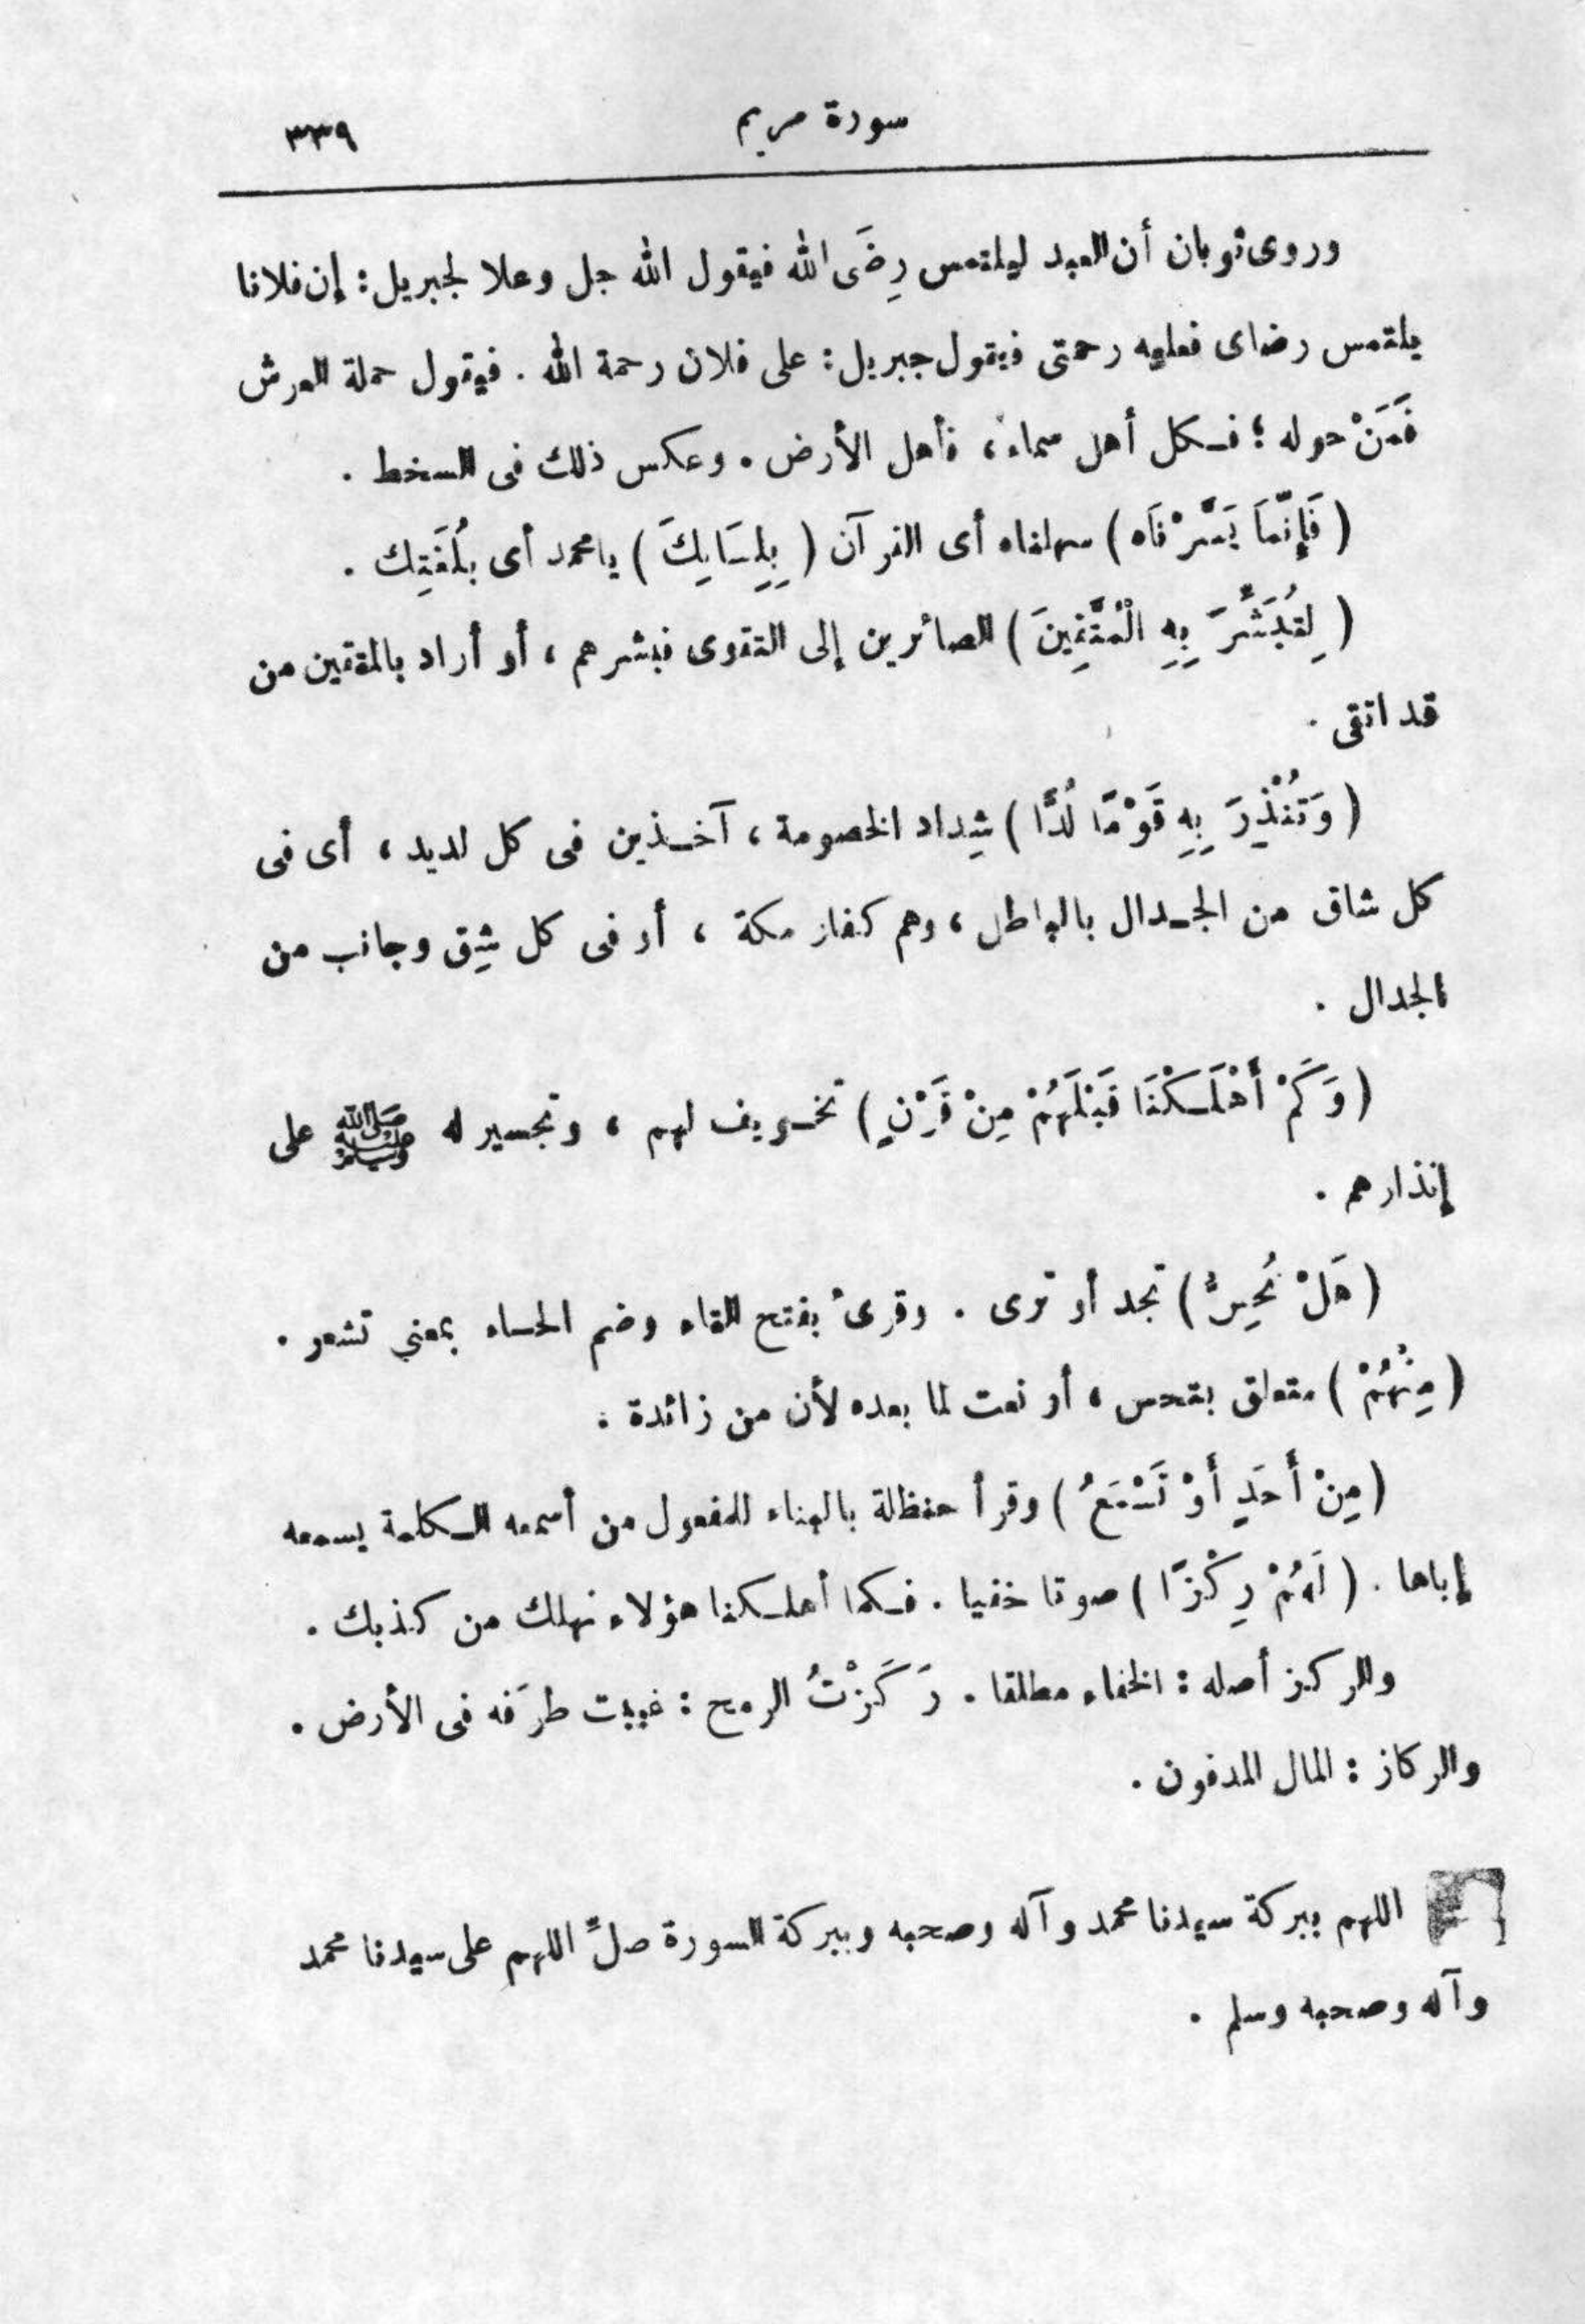 سورة مريم ٣٣٩
وروى ثوبان أن العبد ليلتمس رِضَى الله فيقول الله جل وعلا لجبريل : إن فلانا
يلتمس رضاى فعليه رحمتى فيقول جبريل : على فلان رحمة الله . فيقول حملة العرش
فَمَنْ حوله ؛ فكل أهل سماء ، فأهل الأرض . وعكس ذلك فى السخط .
( فَإِنَّمَا يَسَّرْنَاه ) سهلناه أى القرآن ( بِلِسَانِكَ ) يا محمد أى بلُغَتِك .
( لِتُبَشِّرَ بِهِ الْمُتَّقِينَ ) الصائرين إلى التقوى فبشرهم ، أو أراد بالمتقين من
قد اتقى .
( وَتُنْذِرَ بِهِ قَوْمًا لُدًّا ) شِداد الخصومة ، آخذين فى كل لديد ، أى فى
كل شاق من الجدال بالباطل ، وهم كفار مكة ، أو فى كل شِق وجانب من
الجدال .
( وَكَمْ أَهْلَكْنَا قَبْلَهُمْ مِنْ قَرْنٍ ) تخويف لهم ، وتجسير له ﷺ على
إنذارهم .
( هَلْ تُحِسُّ ) تجد أو ترى . وقرئ بفتح التاء وضم الحاء بمعنى تشعر .
( مِنْهُمْ ) متعلق بتحس ، أو نعت لما بعده لأن من زائدة .
( مِنْ أَحَدٍ أَوْ تَسْمَعُ ) وقرأ حنظلة بالبناء للمفعول من أسمعه الكلمة يسمعه
إياها . ( لَهُمْ رِكْزًا ) صوتا خفيا . فكما أهلكنا هؤلاء نهلك من كذبك .
والركز أصله : الخفاء مطلقا . رَكَزْتُ الرمح : غيبت طرَفه فى الأرض .
والركاز : المال المدفون .
اللهم ببركة سيدنا محمد وآله وصحبه وببركة السورة صلِّ اللهم على سيدنا محمد
وآله وصحبه وسلم .